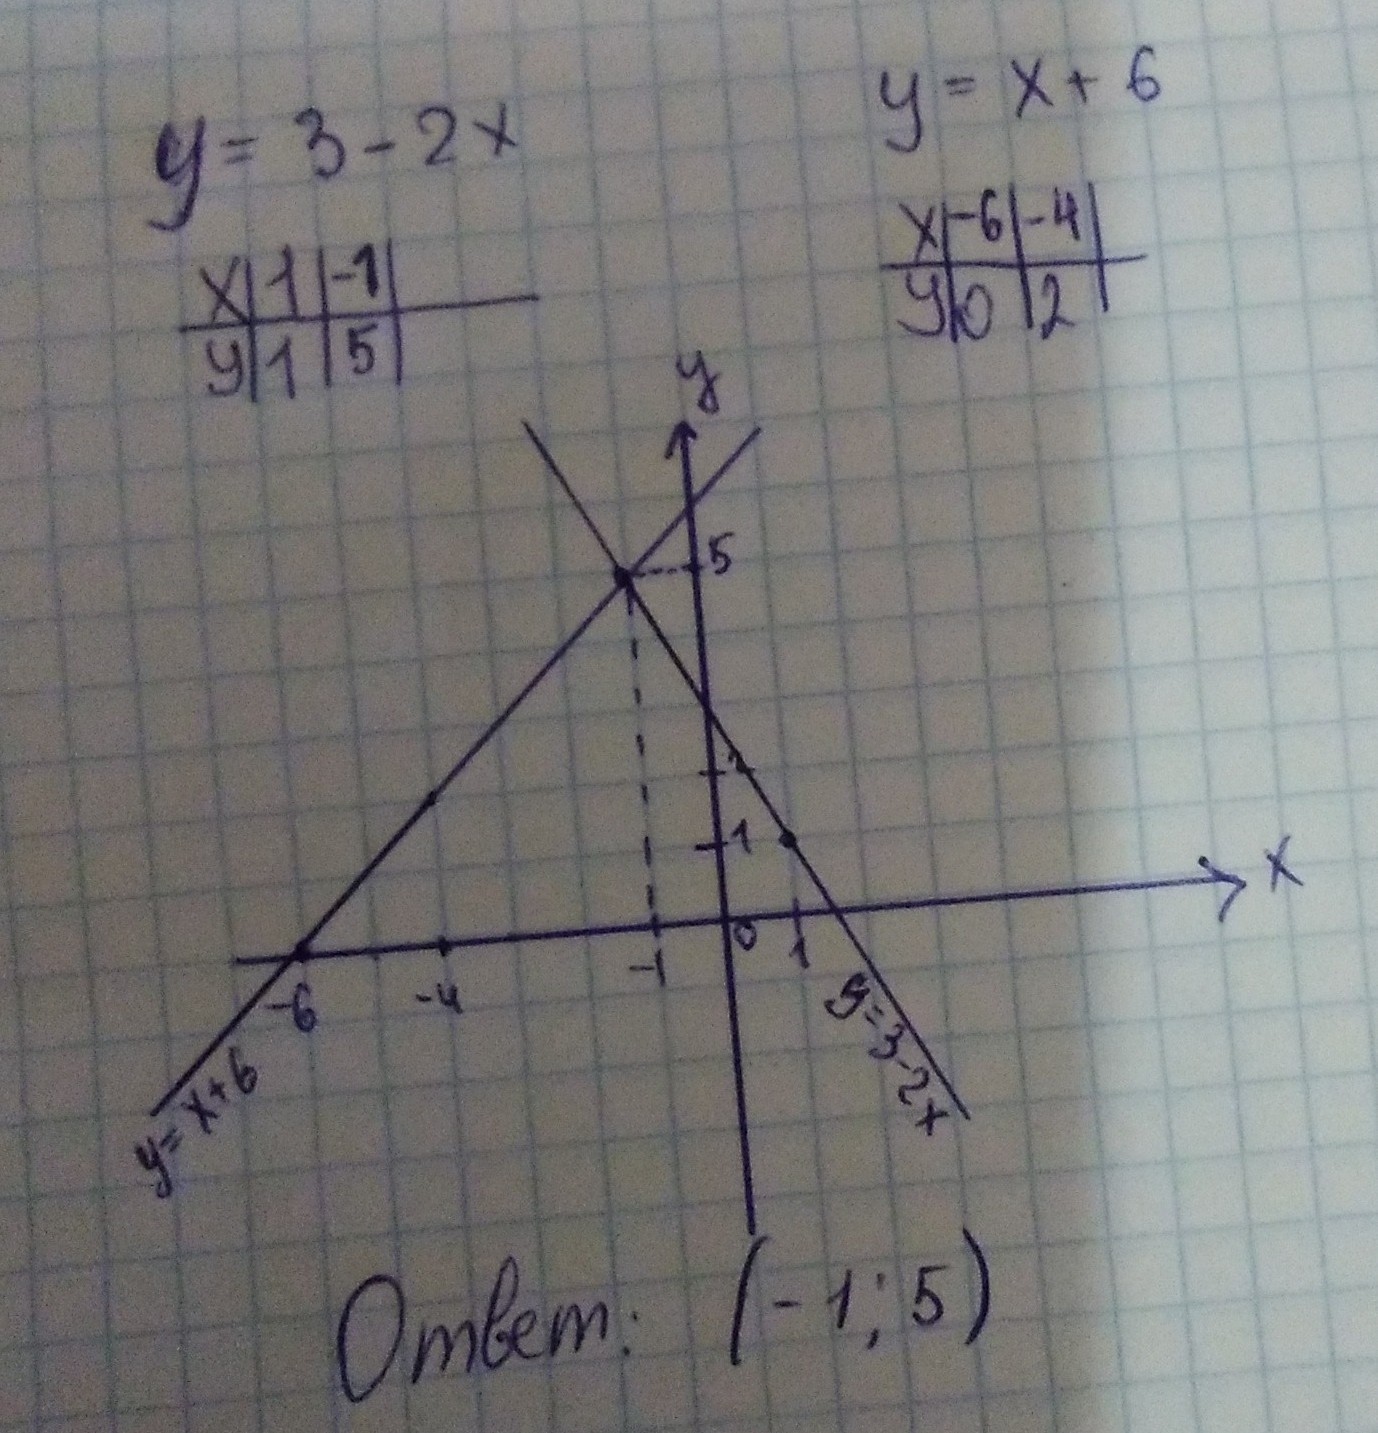 y = 3 - 2x
y = x + 6
x | 1 | -1
y | 1 | 5
x | -6 | -4
y | 0 | 2
y
5
2
1
x
0
-6
-4
-1
1
y = x + 6
y = 3 - 2x
Ответ: (-1; 5)